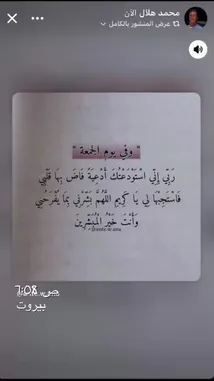 محمد هلال الآن
عرض المنشور بالكامل
" وفي يوم الجمعة "
رَبِّي إِنِّي اسْتَوْدَعْتُكَ أَدْعِيَةً فَاضَ بِهَا قَلْبِي
فَاسْتَجِبْهَا لِي يَا كَرِيمُ اللَّهُمَّ بَشِّرْنِي بِمَا يُفْرِحُنِي
وَأَنْتَ خَيْرُ الْمُبَشِّرِينَ
6:58 ص
بيروت